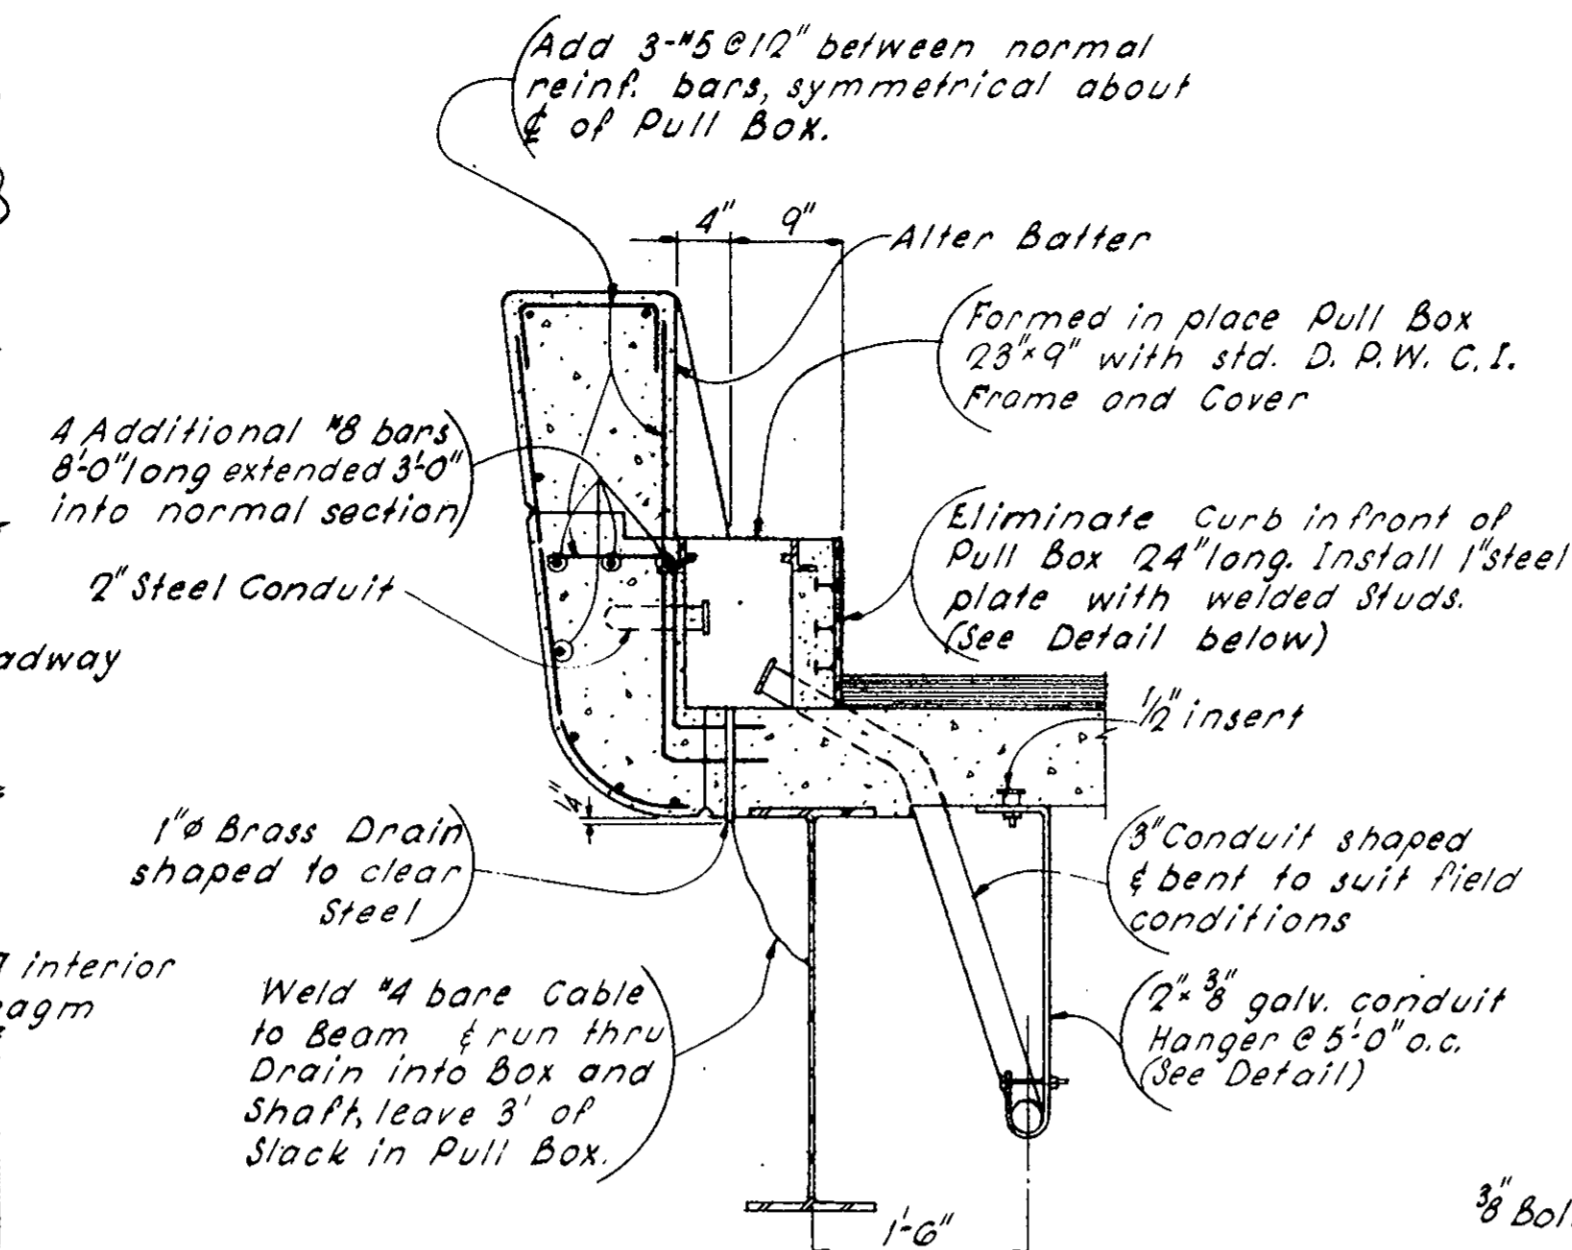 Add 3-#5 @ 12" between normal
reinf. bars, symmetrical about
℄ of Pull Box.
4"
9"
Alter Batter
Formed in place Pull Box
23"x9" with std. D. P. W. C. I.
Frame and Cover
4 Additional #8 bars
8'-0" long extended 3'-0"
into normal section
Eliminate Curb in front of
Pull Box 24" long. Install 1" steel
plate with welded Studs.
(See Detail below)
2" Steel Conduit
adway
1/2" insert
1" ø Brass Drain
shaped to clear
Steel
3" Conduit shaped
& bent to suit field
conditions
interior
agm
Weld #4 bare Cable
to Beam & run thru
Drain into Box and
Shaft, leave 3' of
Slack in Pull Box.
2" x 3/8" galv. conduit
Hanger @ 5'-0" o.c.
(See Detail)
1'-6"
3/8" Bol